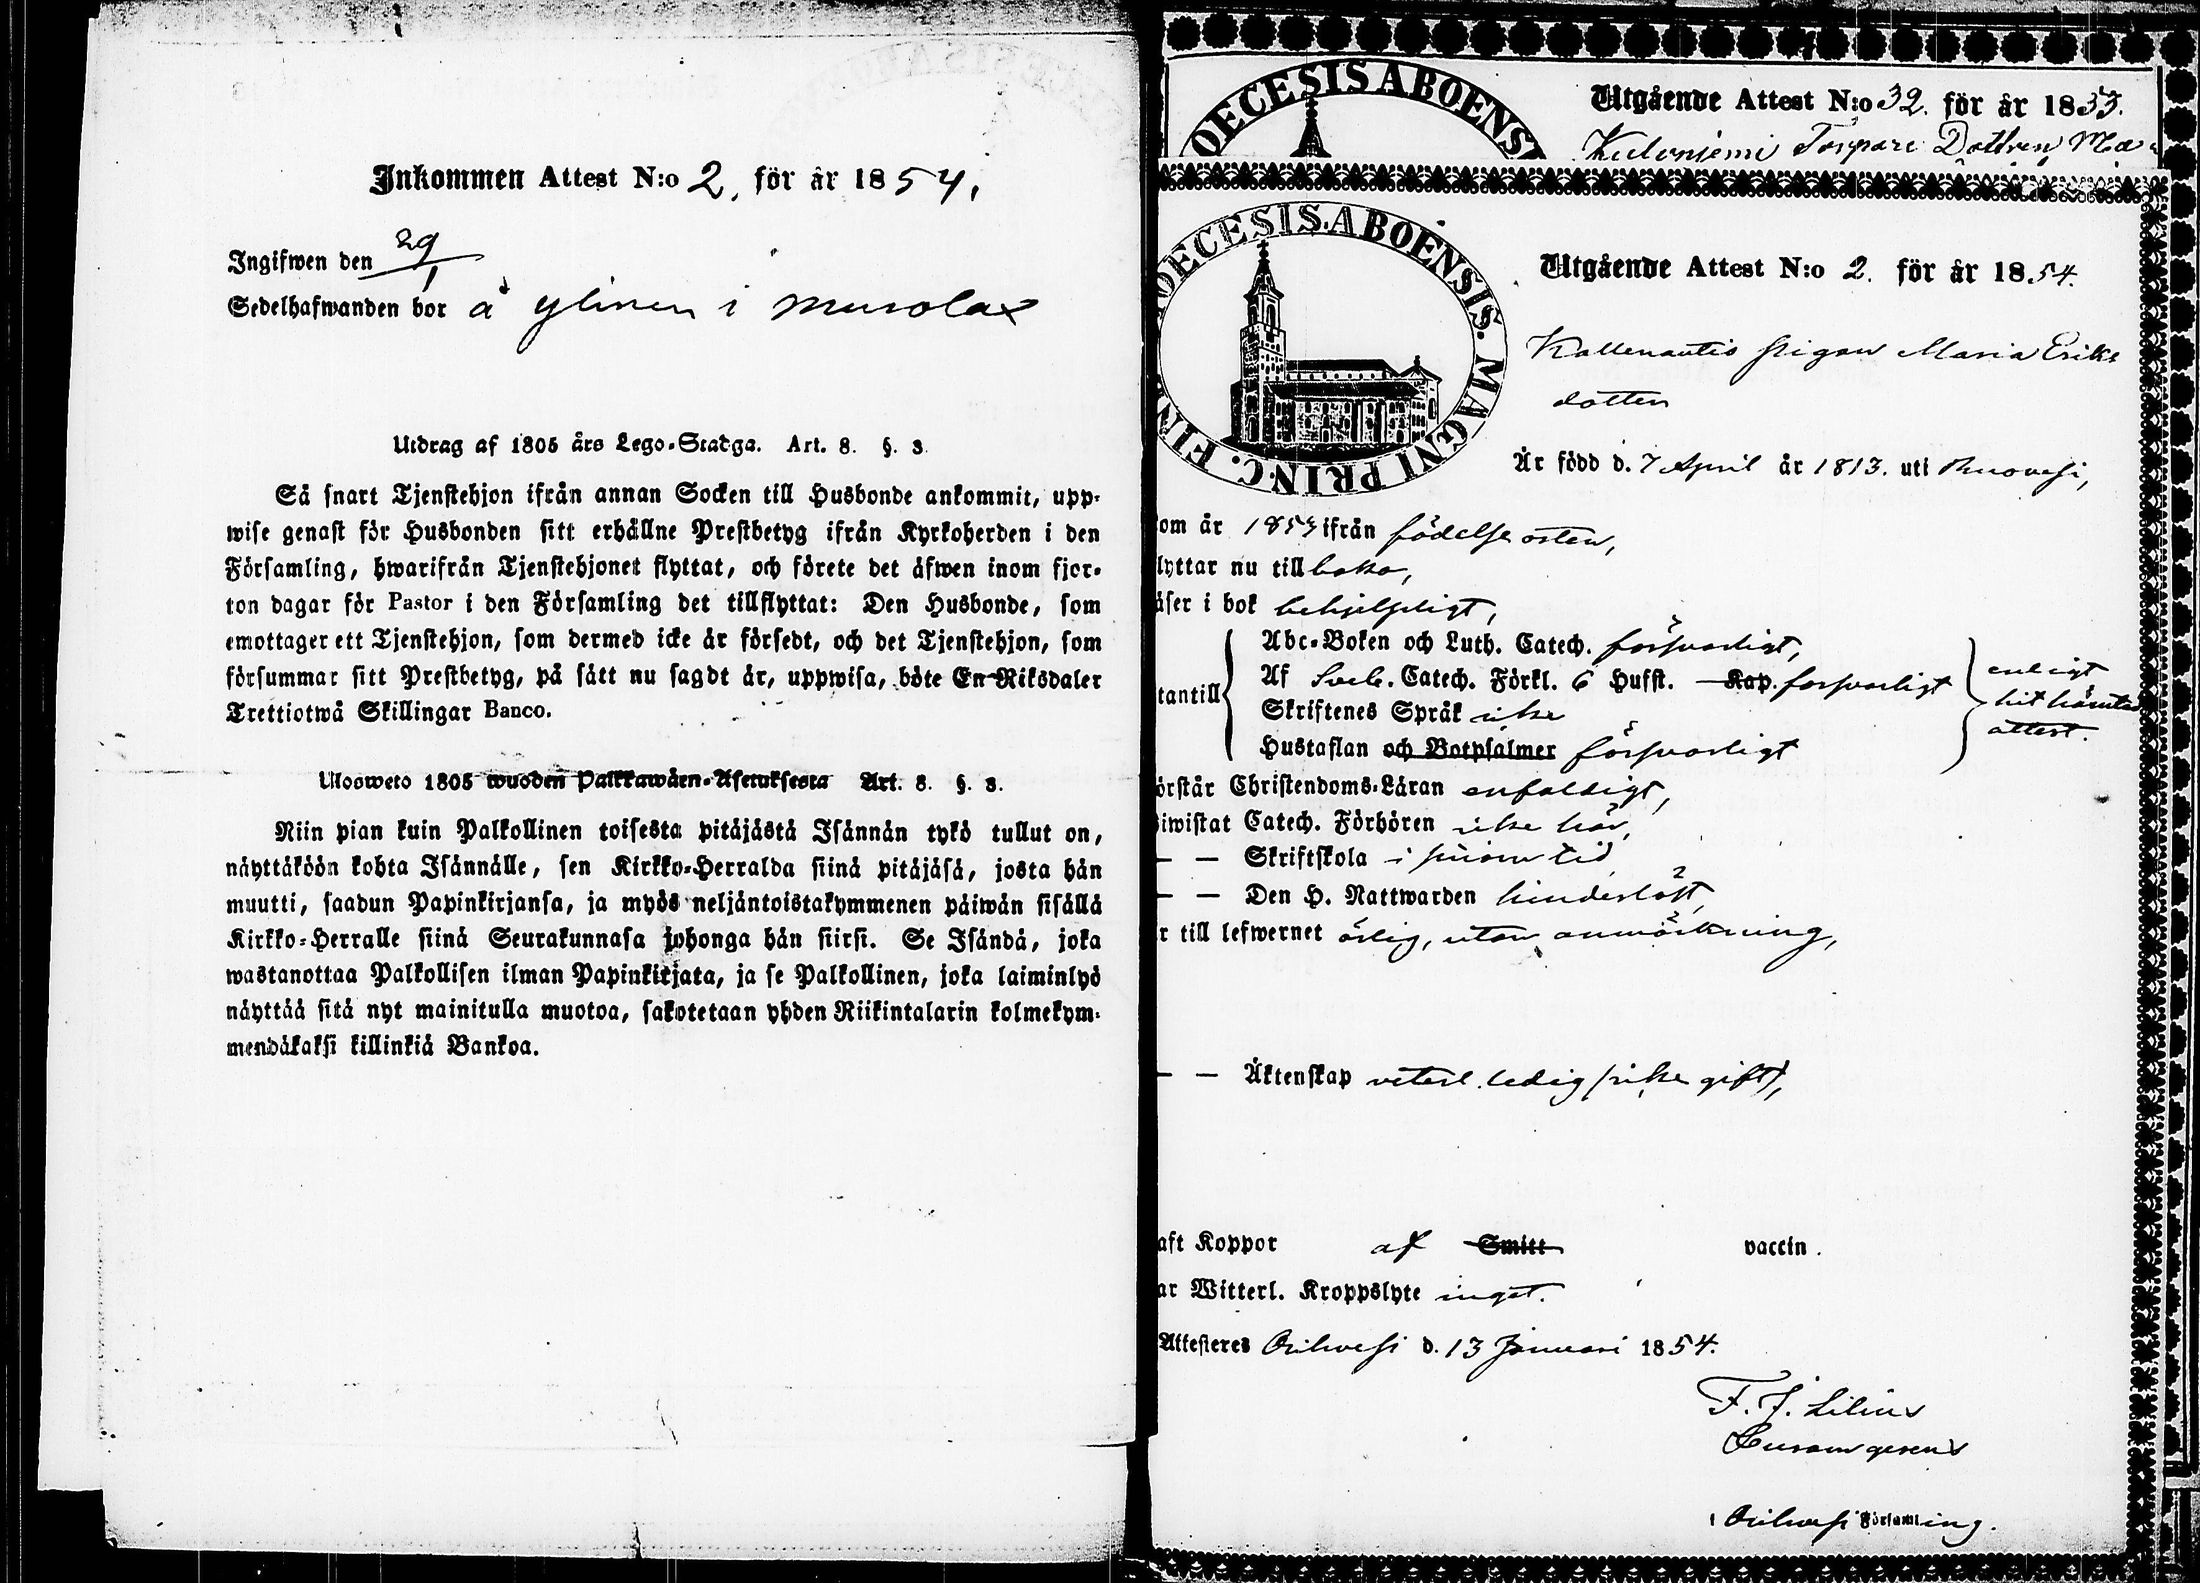 Inkommen Attest N:o 2. för år 1854.
Ingifwen den 29/1
Sedelhafwanden bor å ylinen i Murolax
Utdrag af 1805 års Lego-Stadga. Art. 8. §. 3.
Så snart Tjenstehjon ifrån annan Socken till Husbonde ankommit, upp-
wise genast för Husbonden sitt erhållne Prestbetyg ifrån Kyrkoherden i den
Församling, hwarifrån Tjenstehjonet flyttat, och förete det äfwen inom fjor-
ton dagar för Pastor i den Församling det tillflyttat: Den Husbonde, som
emottager ett Tjenstehjon, som dermed icke är försedt, och det Tjenstehjon, som
försummar sitt Prestbetyg, på sätt nu sagdt är, uppwisa, böte En Riksdaler
Trettiotwå Skillingar Banco.
Ulosweto 1805 wuoden Palkkawäen-Asetuksesta Art. 8. §. 3.
Niin pian kuin Palkollinen toisesta pitäjästä Isännän tykö tullut on,
näyttäköön kohta Isännälle, sen Kirkko-Herralda siinä pitäjäsä, josta hän
muutti, saadun Papinkirjansa, ja myös neljäntoistakymmenen päiwän sisällä
Kirkko-Herralle siinä Seurakunnasa johonga hän siirsi. Se Isändä, joka
wastanottaa Palkollisen ilman Papinkirjata, ja se Palkollinen, joka laiminlyö
näyttää sitä nyt mainitulla muotoa, sakotetaan yhden Riikintalarin kolmekym-
mendäkaksi killinkiä Bankoa.
OECESIS ABOENS
Utgående Attest N:o 32. för år 1853.
Torpare Dottren
OECESIS ABOENSIS. MAGNI PRINC. FIN
Utgående Attest N:o 2. för år 1854.
Kallenautio pigan Maria Eriks
dotter
Är född d. 7 April år 1813. uti Ruovesi,
om år 1853 ifrån födelse orten,
lyttar nu till baka,
äser i bok behjelpligt,
tantill
Abc-Boken och Luth. Catech. försvarligt,
Af Sveb. Catech. Förkl. 6 Hufst. Kap. försvarligt
Skriftenes Språk icke
Hustaflan och Botpsalmer försvarligt
enligt
hit hämtad
attest.
örstår Christendoms-Läran enfaldigt,
iwistat Catech. Förhören icke här,
— — Skriftskola i sinom tid
— — Den H. Nattwarden hinderlöst,
r till lefwernet ärlig, utan anmärkning,
— — Äktenskap veterl. ledig icke gift,
aft Koppor af Smitt vaccin.
ar Witterl. Kroppslyte inget.
Attesteres Orihvesi d. 13 Januari 1854.
F. J. Lilius
Orihvesi Församling.